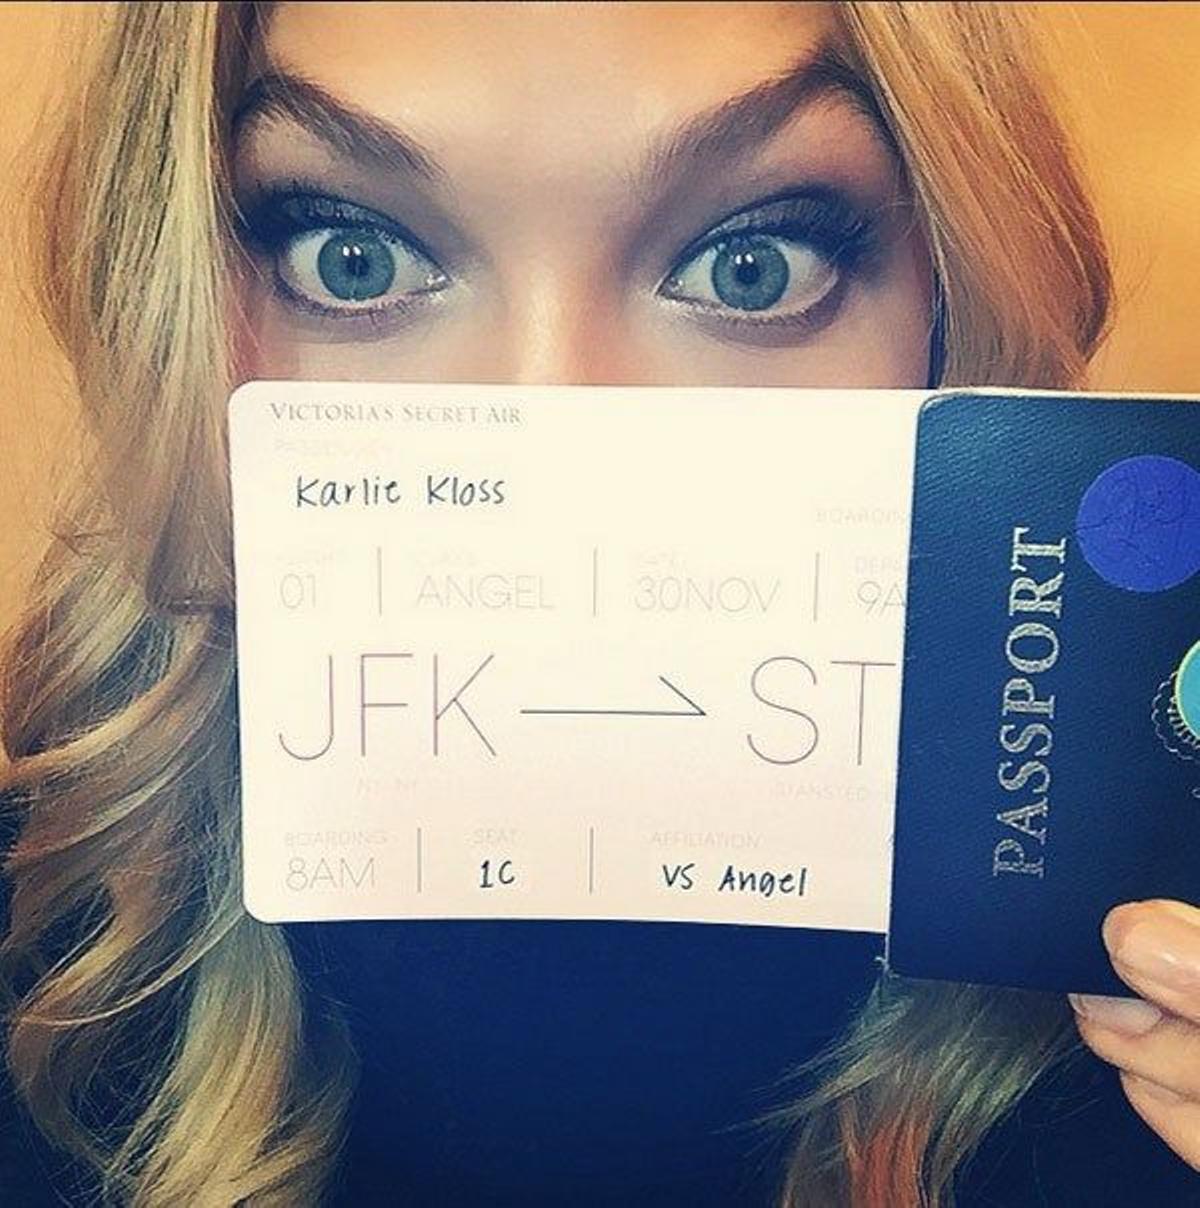 VICTORIA'S SECRET AIR
PASSENGER
Karlie Kloss
BOARDIN
01 | ANGEL | 30NOV | 9A
JFK ST
NY, NY STANSTED
BOARDING SEAT AFFILIATION
8AM | 1C | VS Angel
PASSPORT